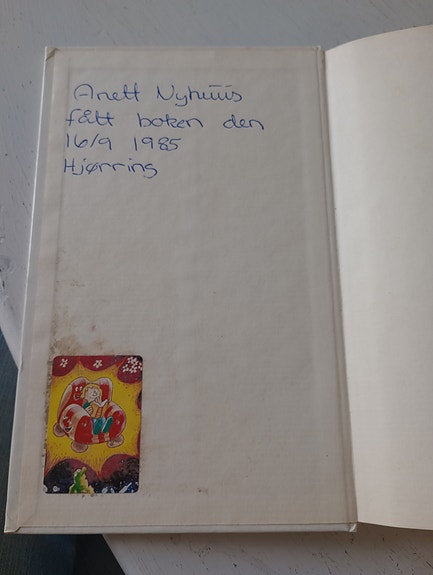 Anett Nyhuus
fått boken den
16/9 1985
Hjørring